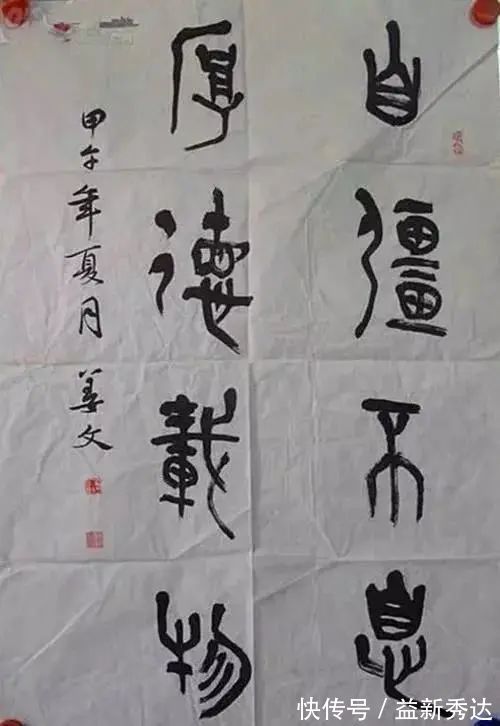 自彊不息
厚德載物
甲午年夏月 姜文
快传号／益新秀达